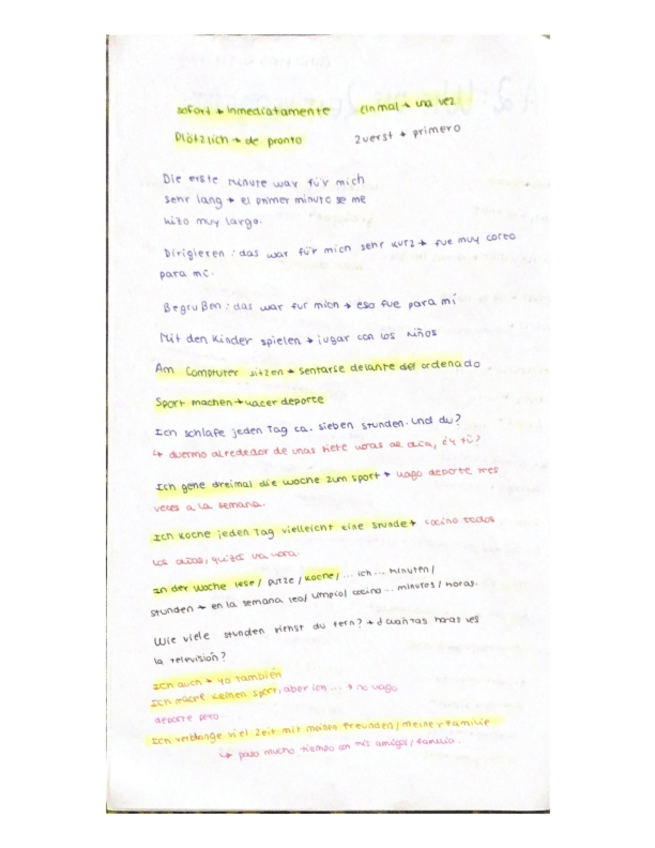 sofort → inmediatamente    einmal → una vez
Plötzlich → de pronto    zuerst → primero
Die erste minute war für mich
sehr lang → el primer minuto se me
hizo muy largo.
Dirigieren : das war für mich sehr kurz → fue muy corto
para mí.
Begrußen : das war fur mich → eso fue para mí
Mit den Kinder spielen → jugar con los niños
Am Computer sitzen → sentarse delante del ordenado
Sport machen → hacer deporte
Ich schlafe jeden Tag ca. sieben stunden. Und du?
↳ duermo alrededor de unas siete horas al día, ¿y tú?
Ich gehe dreimal die woche zum sport → hago deporte tres
veces a la semana.
Ich koche jeden Tag vielleicht eine stunde → cocino todos
los días, quizá una hora.
In der woche lese / putze / koche / ... ich ... minuten /
stunden → en la semana leo / limpio / cocino ... minutos / horas.
Wie viele stunden siehst du fern? → ¿cuántas horas ves
la televisión?
Ich auch → yo también
Ich mache keinen sport, aber ich ... → no hago
deporte pero...
Ich verbringe viel Zeit mit meinen freunden / meiner familie
↳ paso mucho tiempo con mis amigos / familia.